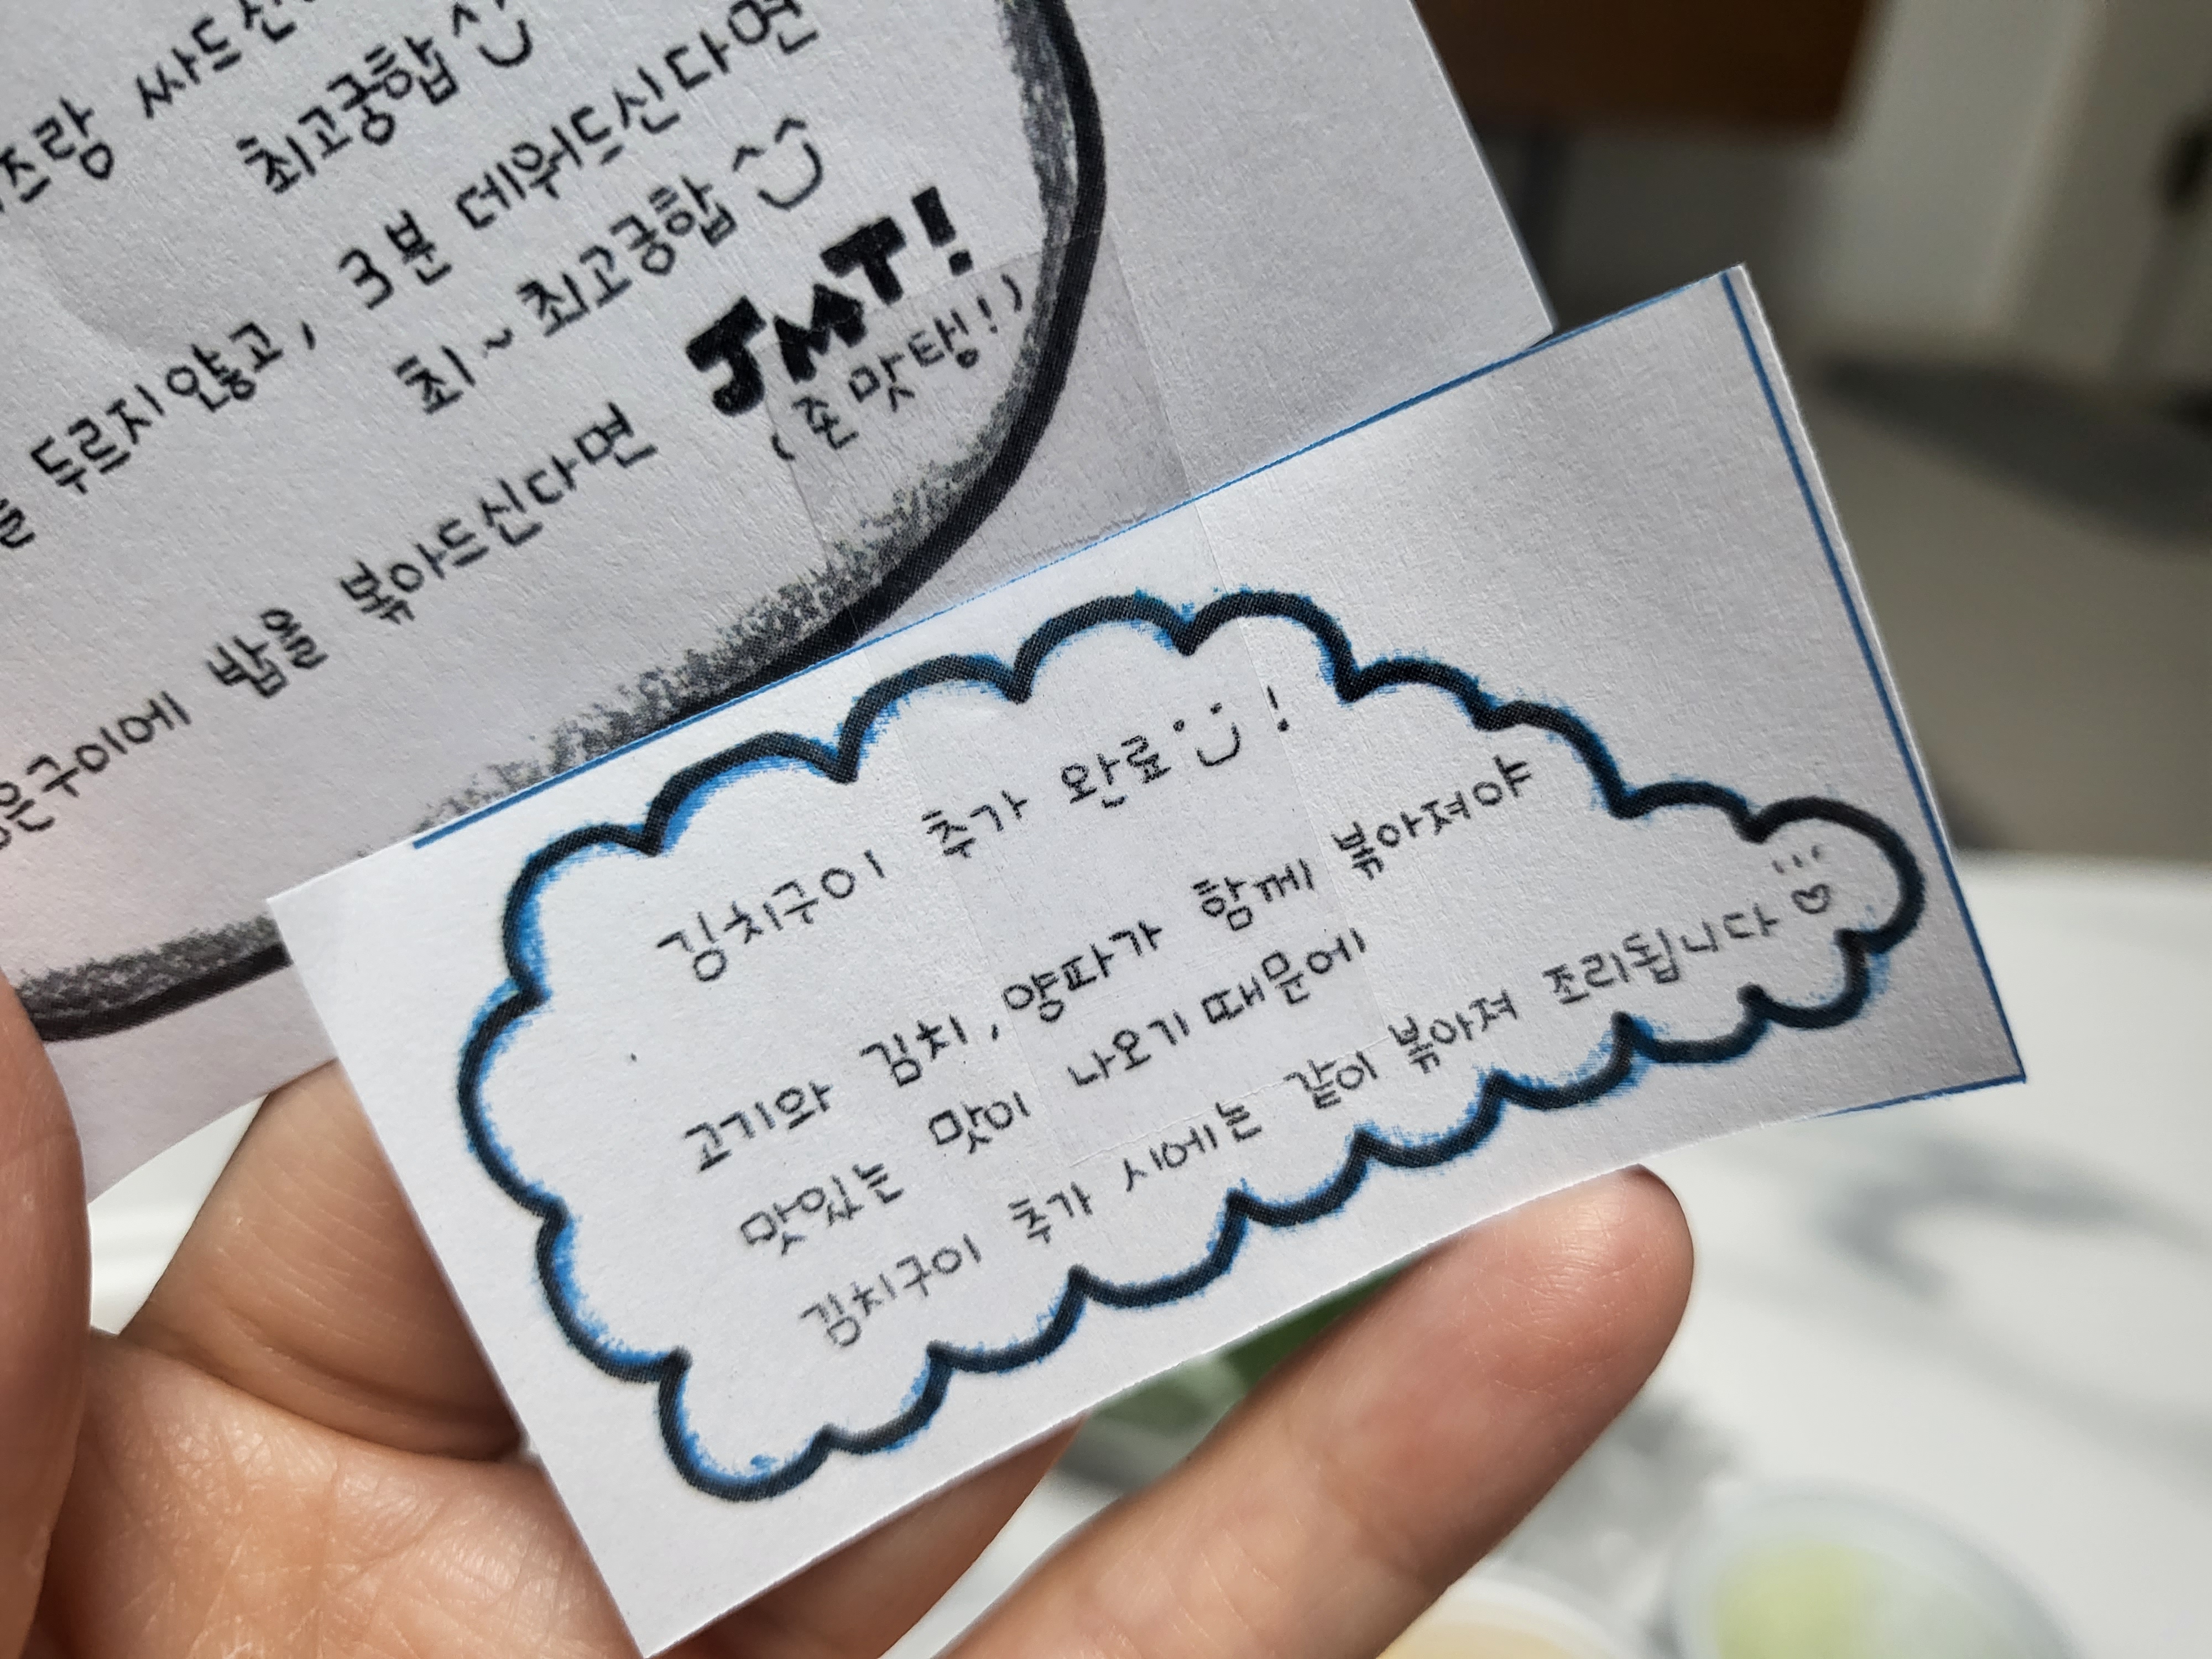 싸드신
최고궁합
두르지않고, 3분 데워드신다면
최~최고궁합
구이에 밥을 볶아드신다면 JMT!
(존맛탱!)
김치구이 추가 완료!
고기와 김치, 양파가 함께 볶아져야
맛있는 맛이 나오기 때문에
김치구이 추가 시에는 같이 볶아져 조리됩니다